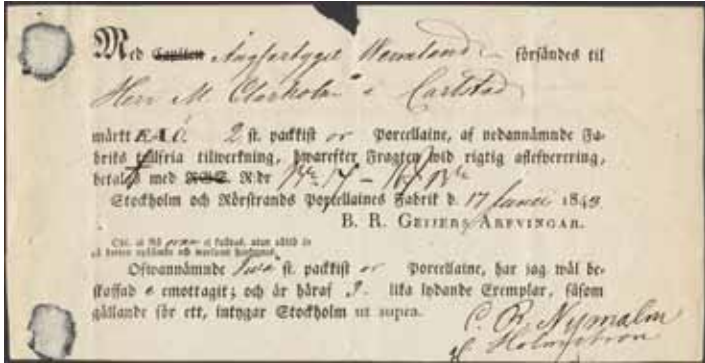 Med Capiten Ångfartyget Wermland försändes til
Herr M Clarholm i Carlstad
märkt Æ A Ö. 2 st. packkist or Porcellaine, af nedannämde Fa-
briks tullfria tilwerkning, hwarefter Fragten wid rigtig aflefwerering,
betales med RGS. R:dr
Stockholm och Rörstrands Porcellaines Fabrik d. 17 Junii 1843
B. R. GEIJERS ARFVINGAR.
Ofwannämnde Twå st. packkist or Porcellaine, har jag wäl be-
skaffad e emottagit; och är häraf 2. lika lydande Exemplar, såsom
gällande för ett, intygar Stockholm ut supra.
C. R. Nymalm
Holmström